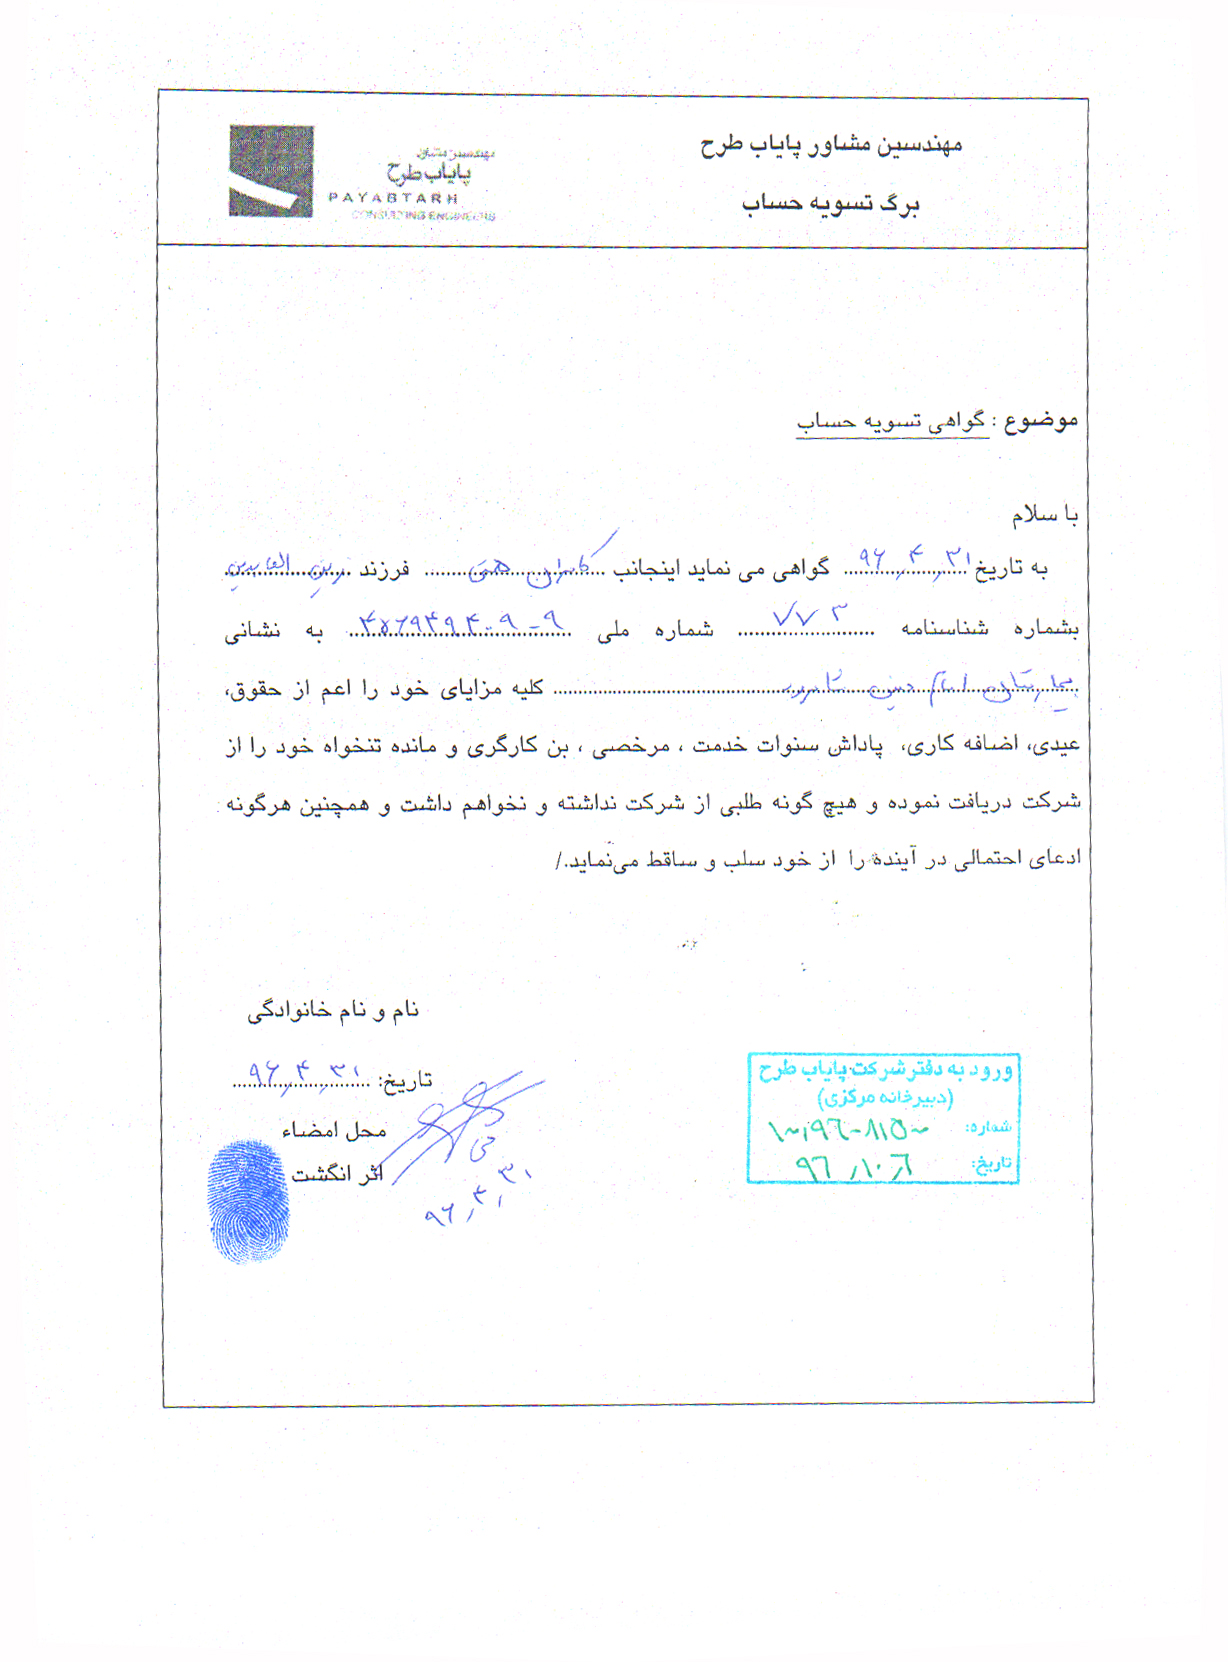 مهندسین مشاور پایاب طرح
برگ تسویه حساب
مهندسین مشاور
پایاب طرح
PAYABTARH
CONSULTING ENGINEERS
موضوع : گواهی تسویه حساب
با سلام
به تاریخ ۹۶٫۴٫۳۱ گواهی می نماید اینجانب کامران همتی فرزند زین العابدین
بشماره شناسنامه ۷۷۳ شماره ملی ۴۵۶۹۴۹۴۰۹-۹ به نشانی
بیمارستان امام حسین شاهرود کلیه مزایای خود را اعم از حقوق،
عیدی، اضافه کاری، پاداش سنوات خدمت ، مرخصی ، بن کارگری و مانده تنخواه خود را از
شرکت دریافت نموده و هیچ گونه طلبی از شرکت نداشته و نخواهم داشت و همچنین هرگونه
ادعای احتمالی در آینده را از خود سلب و ساقط می‌نماید./
نام و نام خانوادگی
تاریخ: ۹۶٫۴٫۳۱
محل امضاء
اثر انگشت
۹۶٫۴٫۳۱
ورود به دفتر شرکت پایاب طرح
(دبیرخانه مرکزی)
شماره:
تاریخ: ۹۶٫۱۰٫۶